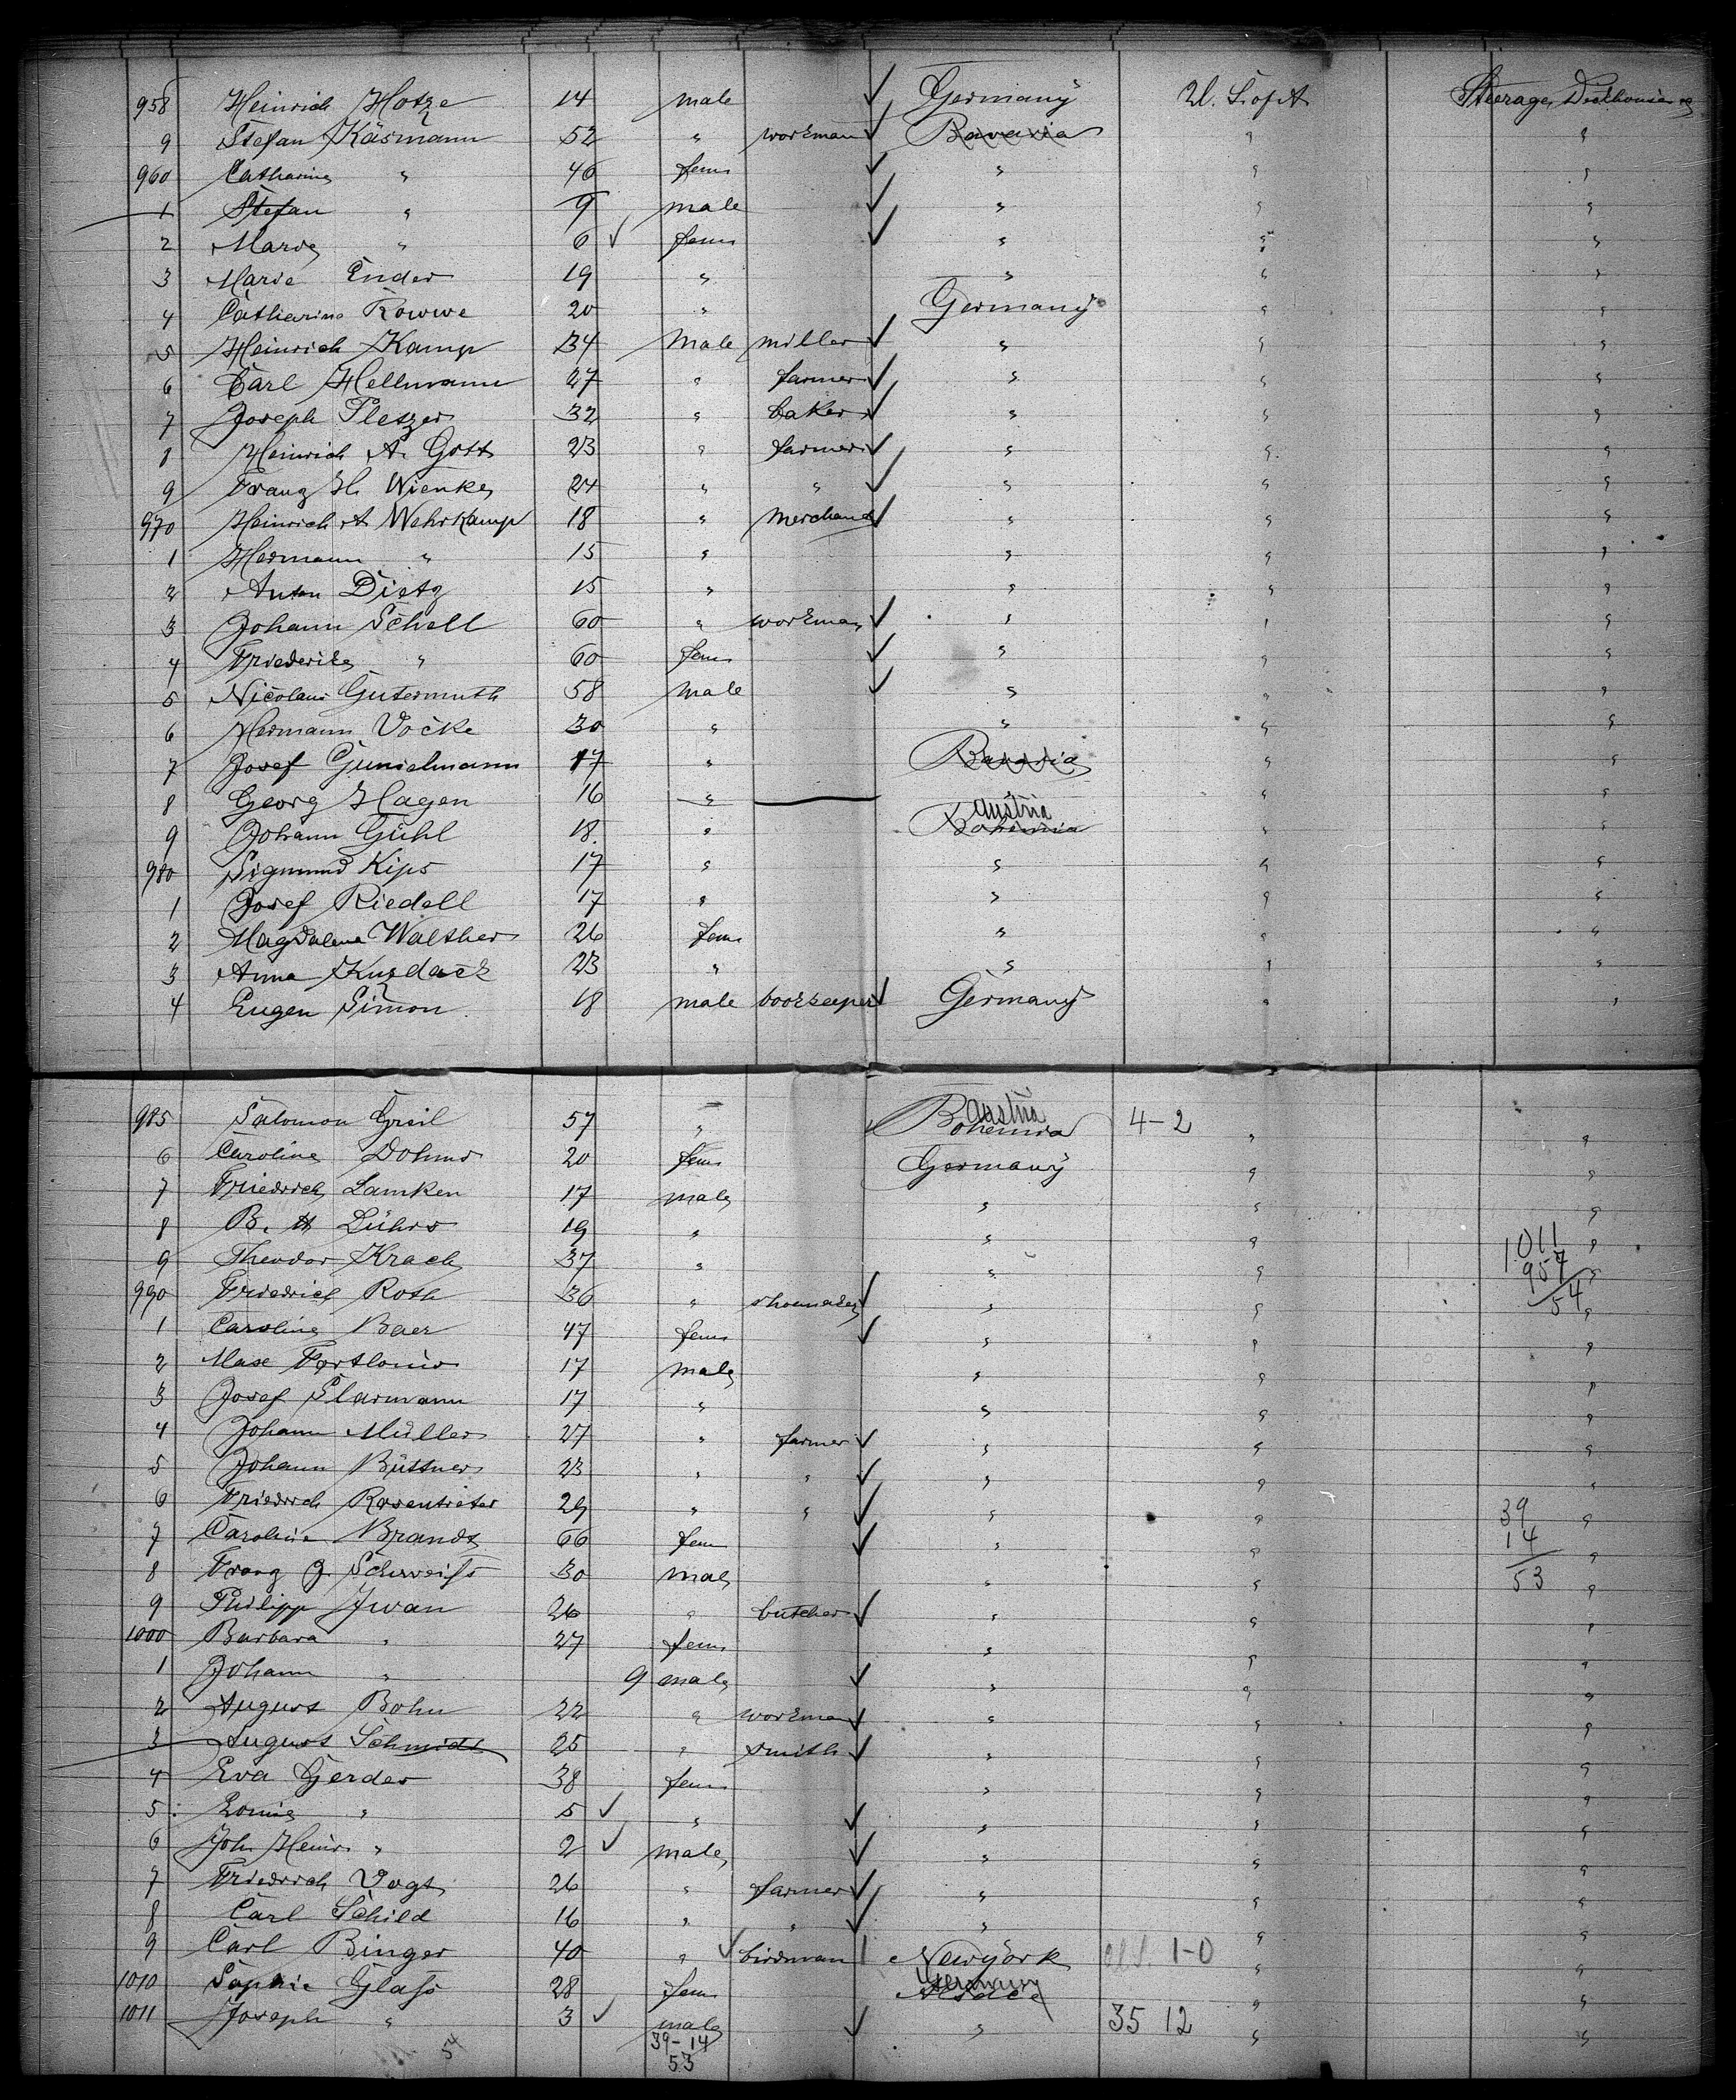 958 Heinrich Hotze 14 male Germany U. S. of A Steerage,
9 Stefan Käsmann 52 " workman Bavaria " "
960 Catharina " 46 fem " " "
1 Stefan " 9 male " " "
2 Marie " 6 fem " " "
3 Marie Ender 19 " " " "
4 Catharina Rowwe 20 " Germany " "
5 Heinrich Kamp 34 Male miller " " "
6 Carl Hellmann 27 " farmer " " "
7 Joseph Pletzer 32 " baker " " "
8 Heinrich A. Gott 23 " farmer " " "
9 Franz H. Wienke 24 " " " " "
970 Heinrich A Wehrkamp 18 " merchand " " "
1 Hermann " 15 " " " "
2 Anton Dietz 15 " " " "
3 Johann Schell 60 " workman " " "
4 Friederike " 60 fem " " "
5 Nicolaus Gutermuth 58 male " " "
6 Hermann Vocke 30 " " " "
7 Josef 17 " Bavaria " "
8 Georg Hagen 16 " " " "
9 Johann Gühl 18 " Bohemia Austria " "
980 Sigmund Kips 17 " " " "
1 Josef Riedell 17 " " " "
2 Magdalena Walther 26 fem " " "
3 Anna Kuzdack 23 " " " "
4 Eugen Simon 18 male bookkeeper Germany " "
985 Salomon 57 " Bohemia Austria 4-2 " "
6 Caroline Dohms 20 fem Germany " "
7 Friedrich Lamken 17 male " " "
8 B. H Lührs 19 " " " " 1011
9 Theodor Krach 37 " " " " 957
990 Friedrich Roth 36 " shoemaker " " " 54
1 Caroline Baer 47 fem " " "
2 Max 17 male " " "
3 Josef Plarmann 17 " " " "
4 Johann Müller 27 " farmer " " "
5 Johann Büttner 23 " " " " "
6 Friedrich Rosentreter 29 " " " " 39 "
7 Caroline Brandt 66 fem " " 14 "
8 Franz J. Schweiss 30 male " " 53 "
9 Philipp Iwan 26 " butcher " " "
1000 Barbara " 27 fem " " "
1 Johann " 9 male " " "
2 August Bohn 22 " workman " " "
3 August Schmidt 25 " smith " " "
4 Eva Gerdes 38 fem " " "
5 " 5 " " " "
6 Joh. Heinr. " 2 male " " "
7 Friedrich Vogt 26 " farmer " " "
8 Carl Schild 16 " " " " "
9 Carl Binger 40 " birdman New york 1-0 " "
1010 Sophie Glass 28 fem Alsace Germany " "
1011 Joseph " 3 male " 35 12 " "
54 39-14
53